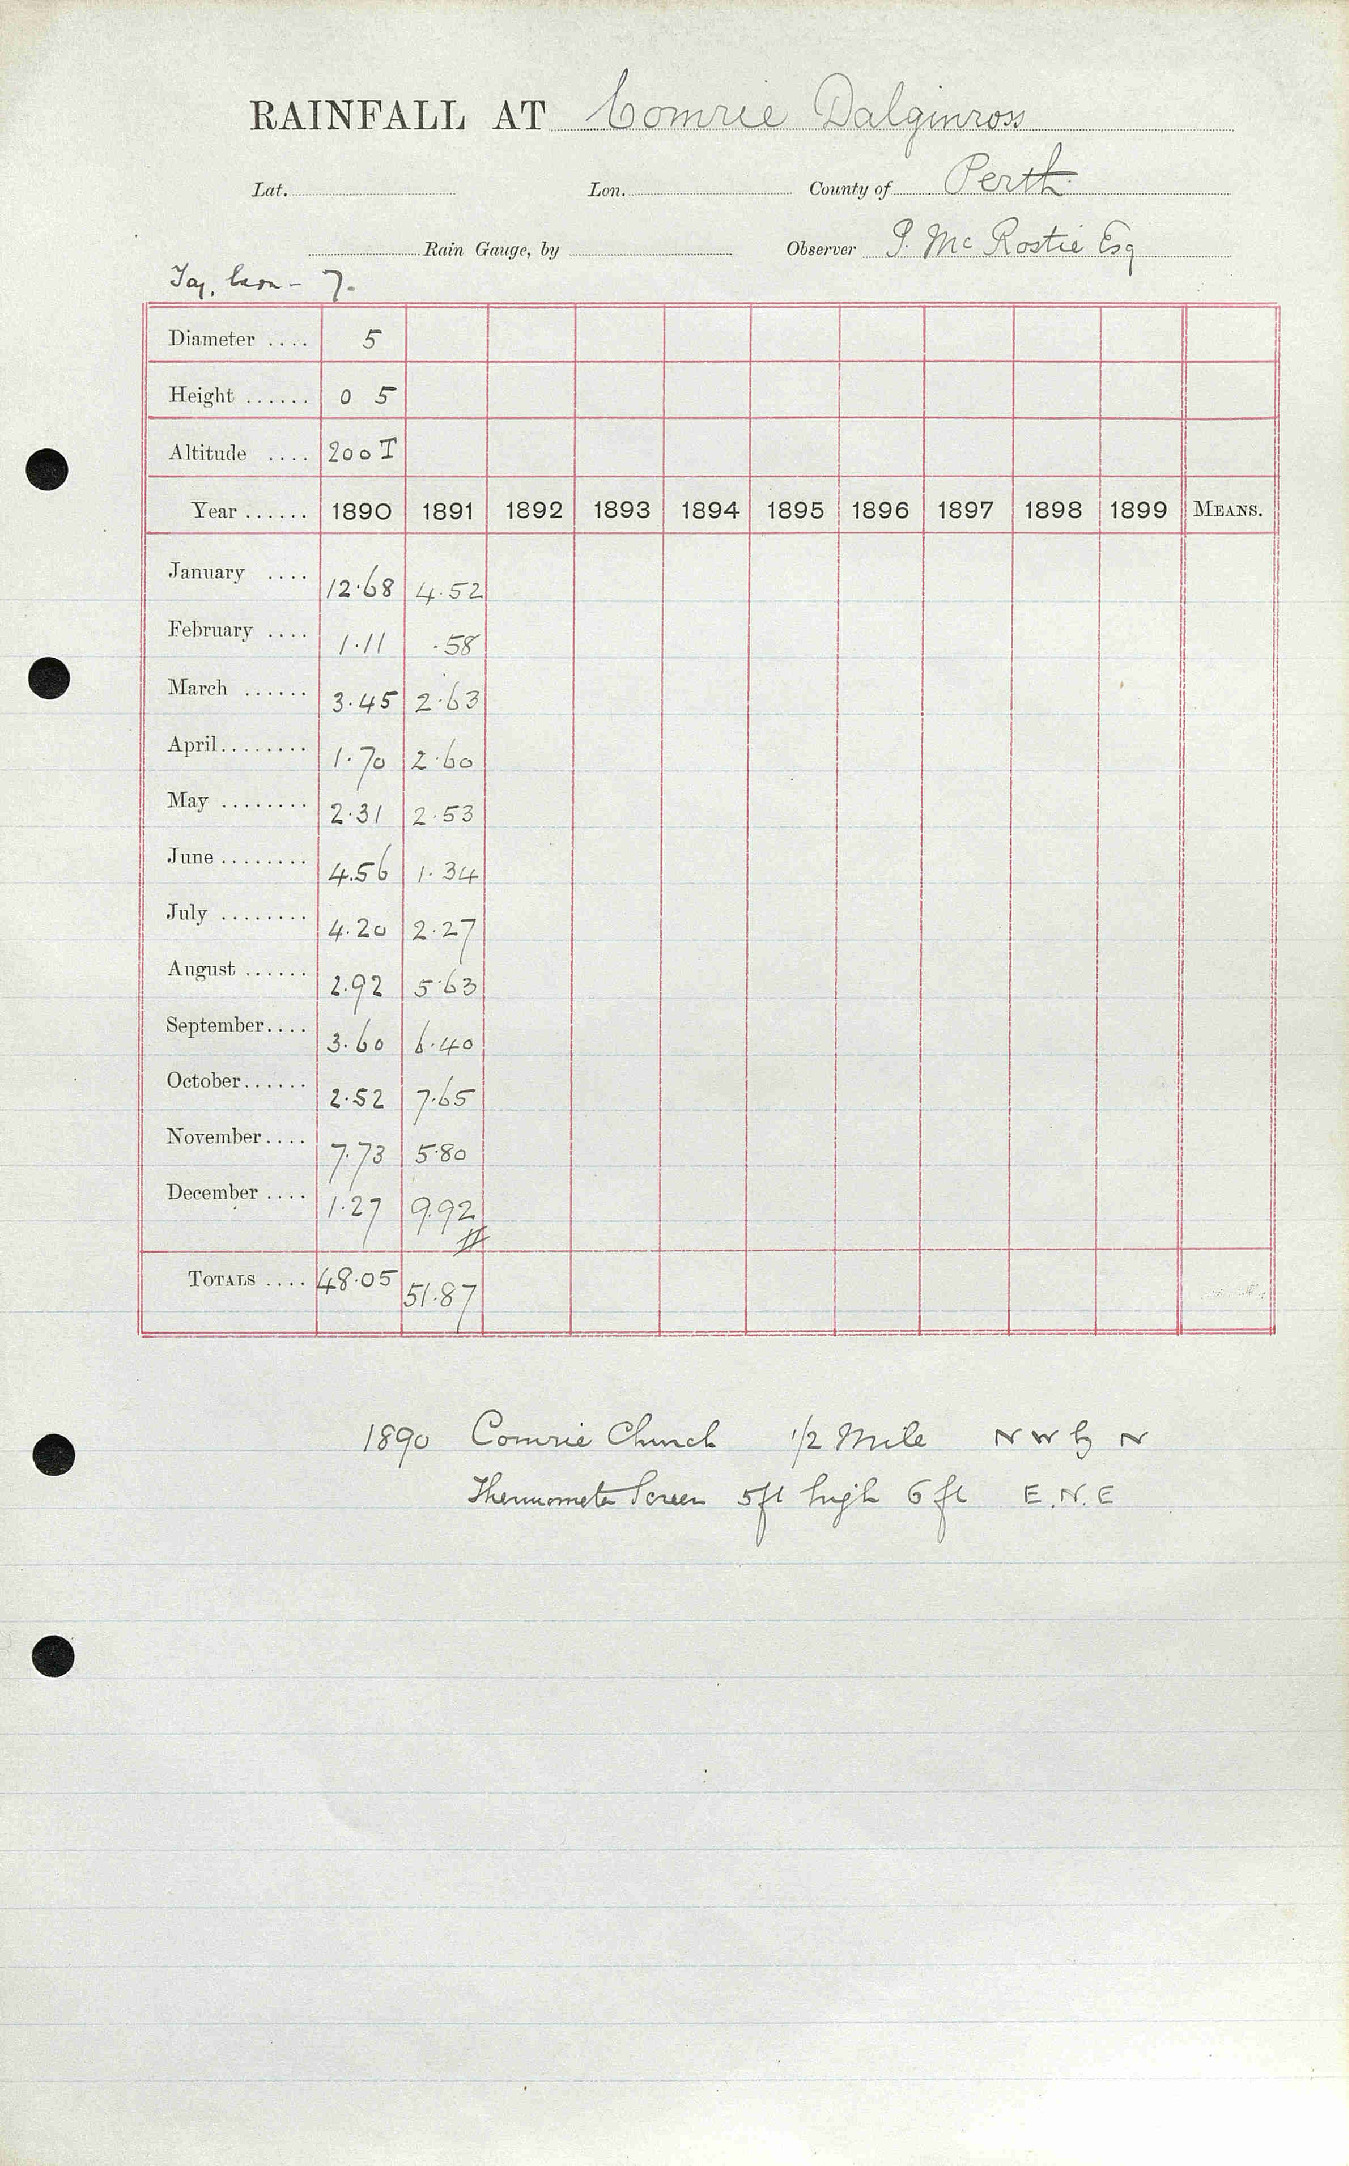 RAINFALL AT Comrie Dalginross
Lat. Lon. County of Perth
Rain Gauge, by Observer P. McRostie Esq
Tay, Earn - 7.
Diameter .... 5
Height ...... 0 5
Altitude .... 200 T
Year ...... 1890 1891 1892 1893 1894 1895 1896 1897 1898 1899 MEANS.
January .... 12.68 4.52
February .... 1.11 .58
March ...... 3.45 2.63
April........ 1.70 2.60
May ........ 2.31 2.53
June ........ 4.56 1.34
July ........ 4.20 2.27
August ...... 2.92 5.63
September.... 3.60 6.40
October...... 2.52 7.65
November.... 7.73 5.80
December .... 1.27 9.92
TOTALS .... 48.05 51.87
1890 Comrie Church 1/2 Mile N W by N
Thermometer Screen 5ft high 6 ft E.N.E